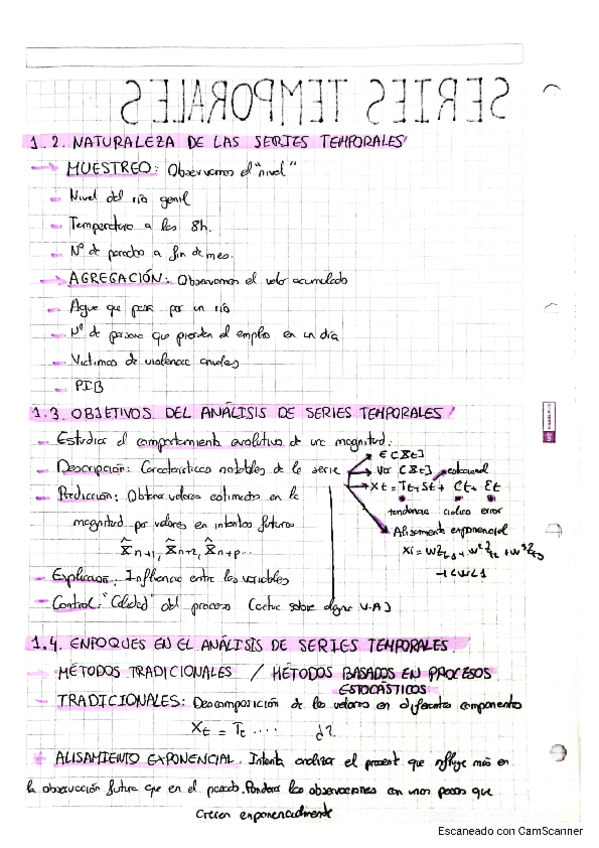 SERIES TEMPORALES
1.2. NATURALEZA DE LAS SERIES TEMPORALES
MUESTREO: Observamos el "nivel"
- Nivel del río genil
- Temperatura a las 8h.
- Nº de parados a fin de mes.
AGREGACIÓN: Observamos el valor acumulado
- Agua que pasa por un río
- Nº de personas que pierden el empleo en un día
- Victimas de violencia anuales
- PIB
1.3. OBJETIVOS DEL ANÁLISIS DE SERIES TEMPORALES
- Estudiar el comportamiento evolutivo de una magnitud:
- Descripción: Características notables de la serie
E[Xt]
Var [Xt]
estacional
Xt = Tt + St + Ct + Et
tendencia ciclica error
- Predicción: Obtener valores estimados en la
magnitud por valores en intantes futuros
X̂n+1, X̂n+2, X̂n+p...
Alisamiento exponencial
- Explicación: Influencia entre las variables
- Control: "Calidad" del proceso (actuar sobre alguna V.A)
1.4. ENFOQUES EN EL ANÁLISIS DE SERIES TEMPORALES
MÉTODOS TRADICIONALES / MÉTODOS BASADOS EN PROCESOS
ESTOCÁSTICOS
- TRADICIONALES: Descomposición de los valores en diferentes componentes
Xt = Tt .... ¿?
* ALISAMIENTO EXPONENCIAL. Intenta analizar el present que influye más en
la observación futura que en el pasado. Pondera las observaciones con unos pesos que
crecen exponencialmente
Escaneado con CamScanner